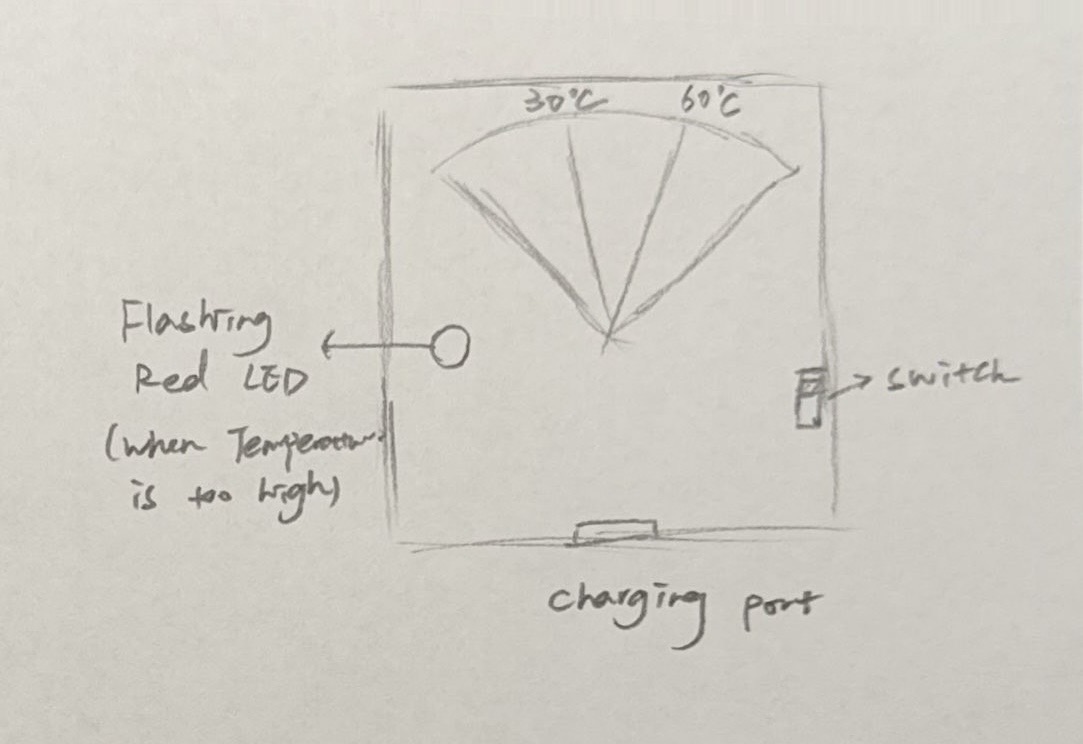 30°C 60°C
Flashing
Red LED
(when Temperature
is too high)
switch
charging port